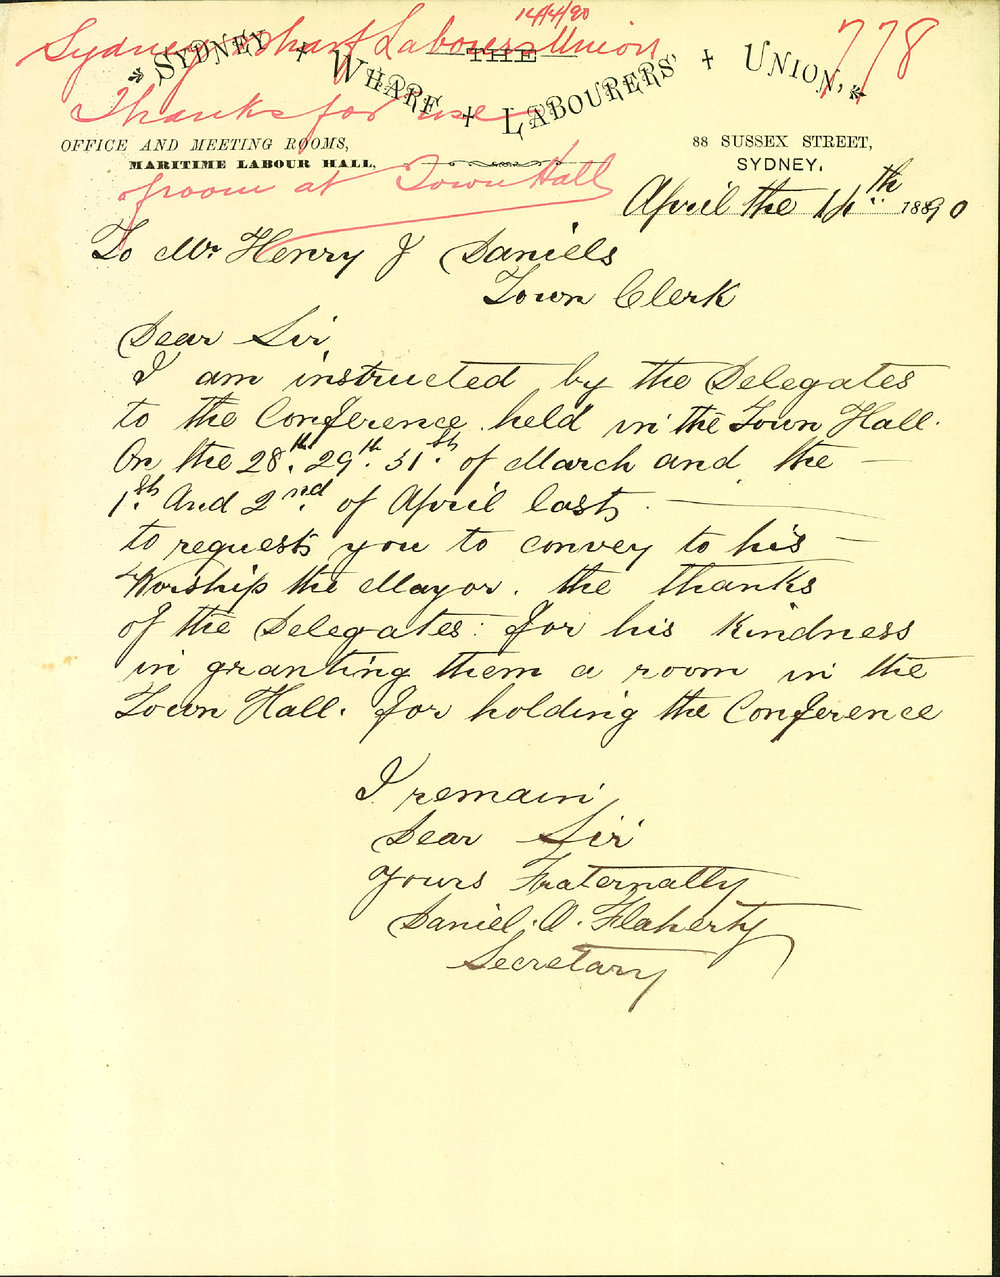 14/4/90
Sydney Wharf Laborers Union 778
THE
SYDNEY WHARF LABOURERS' UNION,
Thanks for use
OFFICE AND MEETING ROOMS, 88 SUSSEX STREET,
MARITIME LABOUR HALL, SYDNEY,
of room at Town Hall
April the 14th 1890
To Mr Henry J Daniels
Town Clerk
Dear Sir
I am instructed by the Delegates
to the Conference held in the Town Hall.
On the 28th. 29th. 31st. of March and the —
1st. And 2nd. of April last.
to request you to convey to his —
Worship the Mayor. the thanks
of the Delegates: for his Kindness
in granting them a room in the
Town Hall. for holding the Conference
I remain
Dear Sir
Yours Fraternally
Daniel. O. Flaherty
Secretary